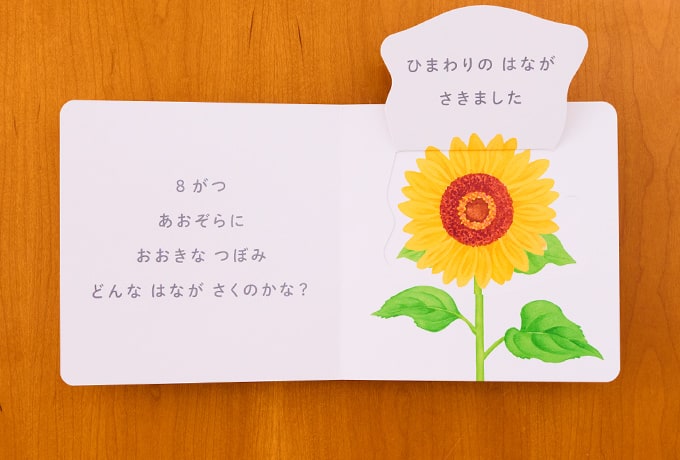 8がつ
あおぞらに
おおきな つぼみ
どんな はなが さくのかな？
ひまわりの はなが
さきました